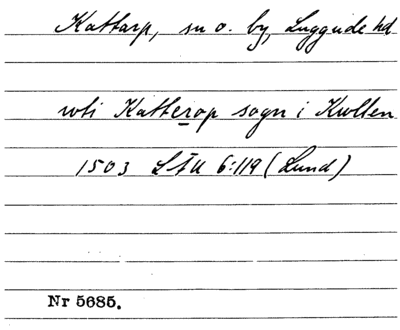 Kattarp, sn o. by, Luggude hd
wti Katterop sogn i Kwllen
1503 LÄU 6:119 (Lund)
Nr 5685.